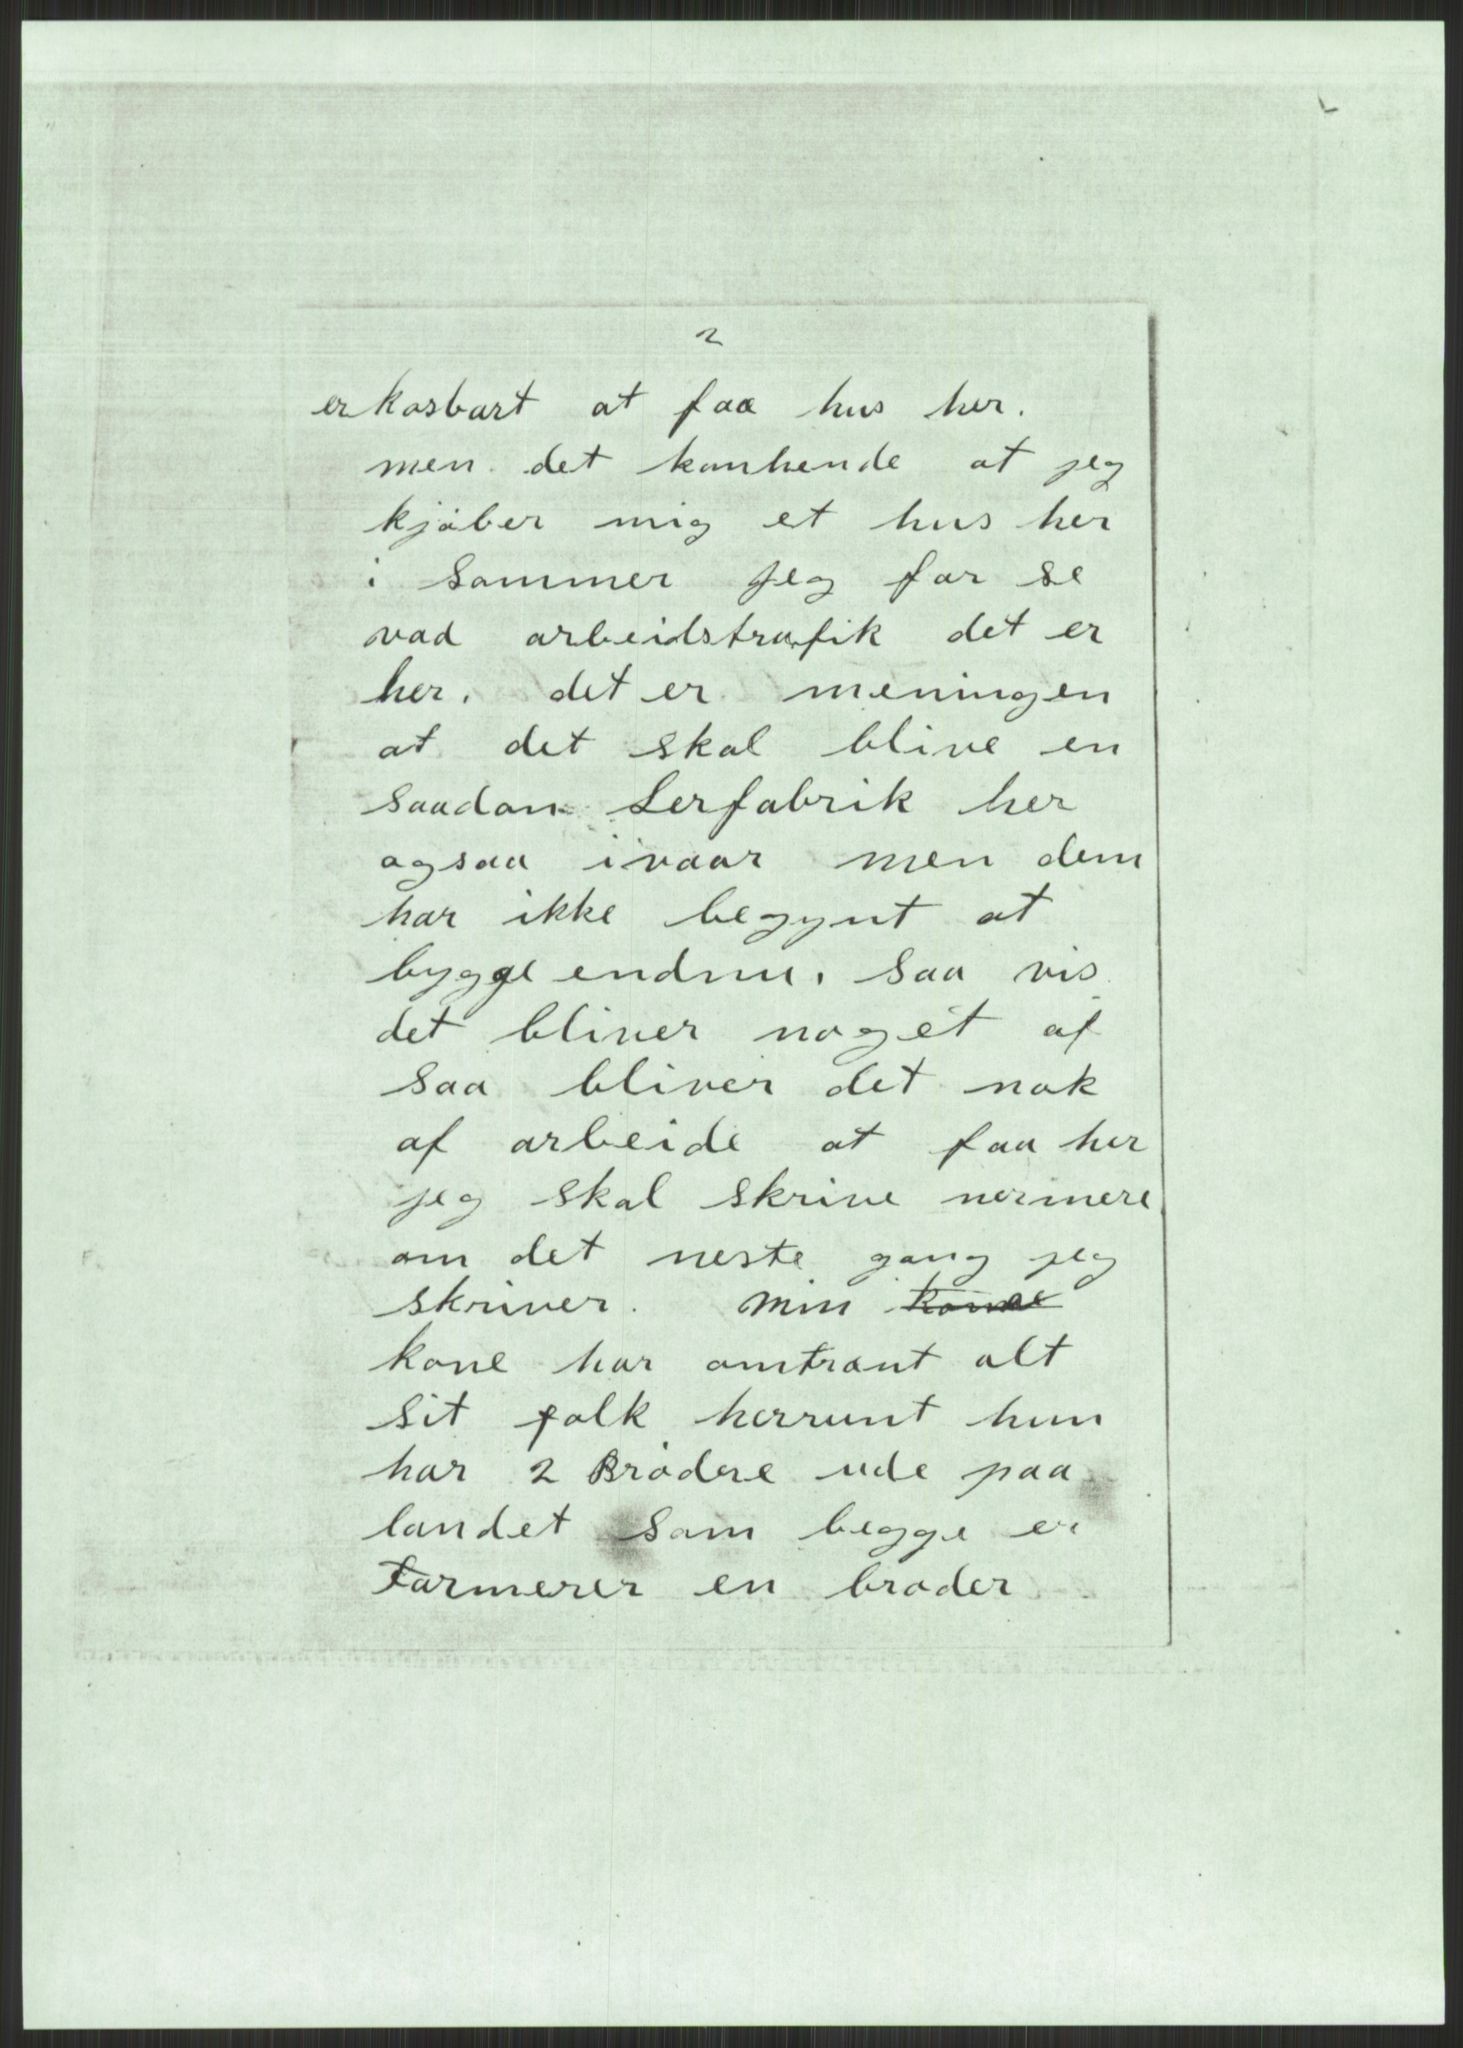 2
er kosbart at faa hus her.
men det kanhende at jeg
kjøber mig et hus her
i sommer jeg far se
vad arbeidstrafik det er
her. det er meningen
at det skal blive en
saadan Lerfabrik her
ogsaa ivaar men dem
har ikke begynt at
bygge endnu. saa vis
det bliver noget af
saa bliver det nok
af arbeide at faa her
jeg skal skrive nermere
om det neste gang jeg
skriver. Min
kone har omtrant alt
sit folk herrunt hun
har 2 Brødere ude paa
landet som begge er
Farmerer en broder